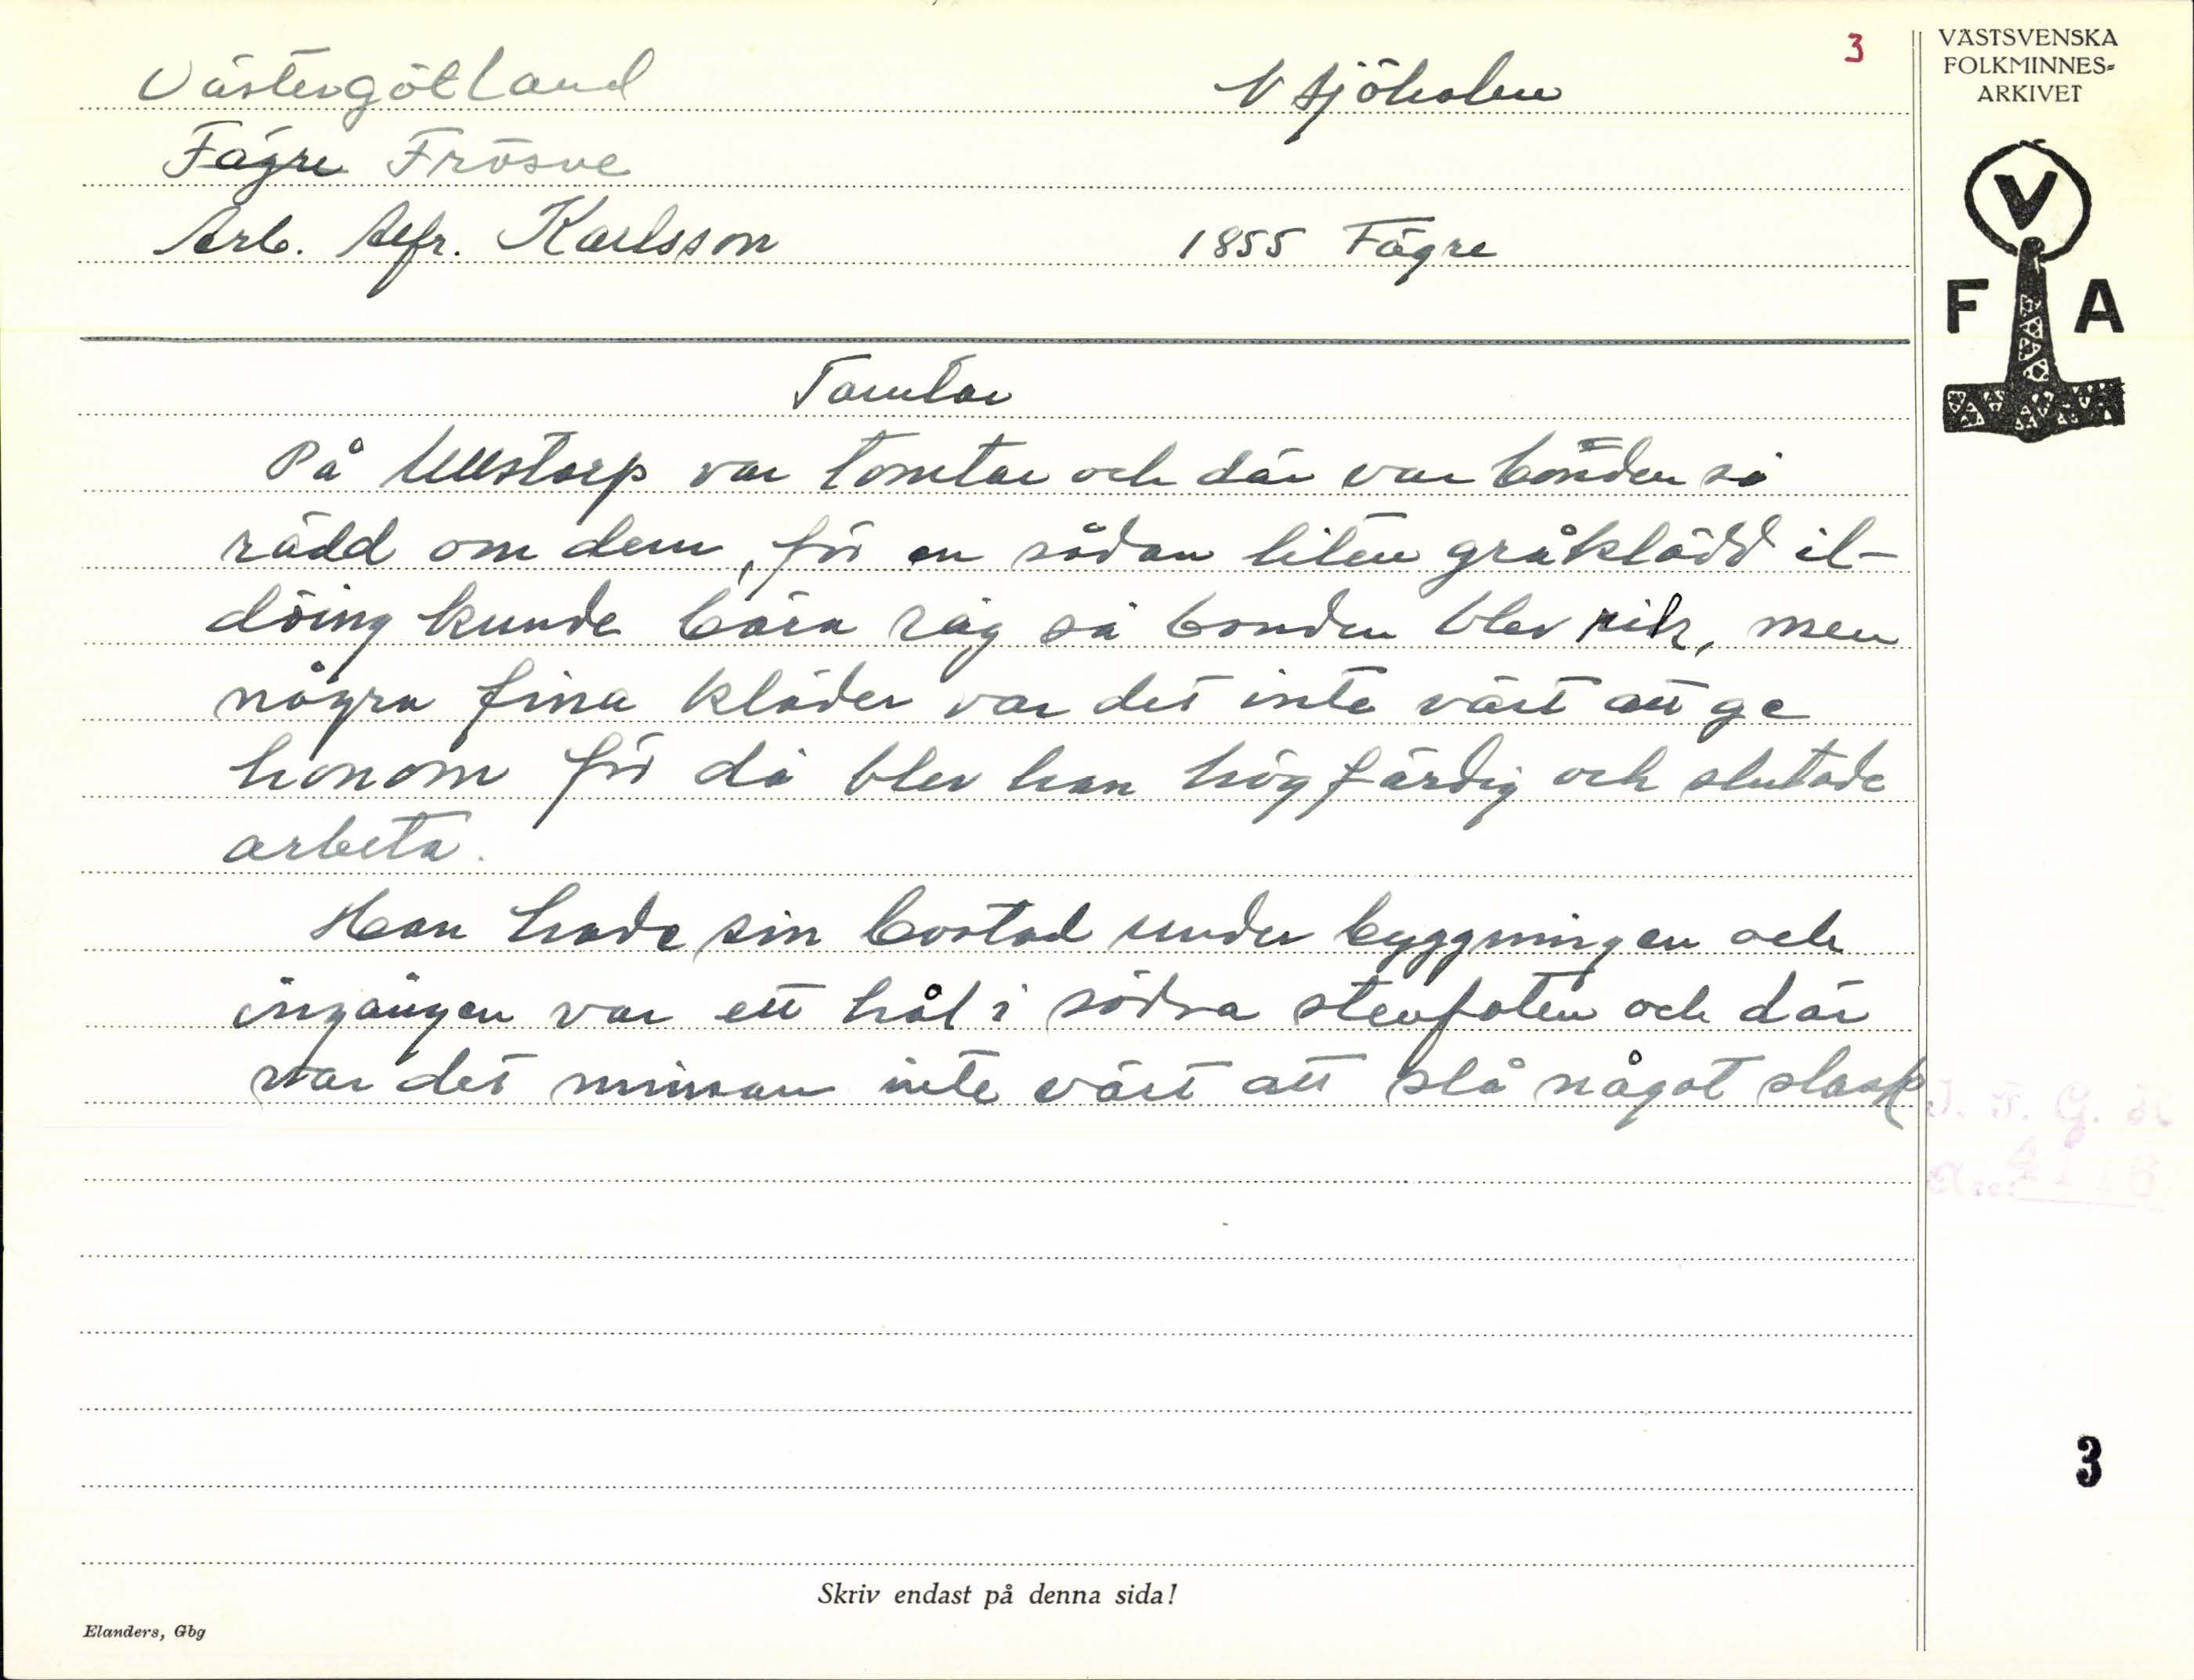 3
VÄSTSVENSKA
FOLKMINNES-
ARKIVET
Västergötland
V Sjöholm
Fägre Frösve
Arb. Alfr. Karlsson 1855 Fägre
V
F A
Tomtar
På Ullstorp var tomtar och där var bonden så
rädd om dem, för en sådan liten gråklädd il-
döing kunde bära råg så bonden blev rik, men
några fina kläder var det inte värt att ge
honom för då blev han högfärdig och slutade
arbeta.
Han hade sin bostad under byggningen och
ingången var ett hål i södra stenfoten och där
var det minsan inte värt att slå något slask
3
Skriv endast på denna sida!
Elanders, Gbg